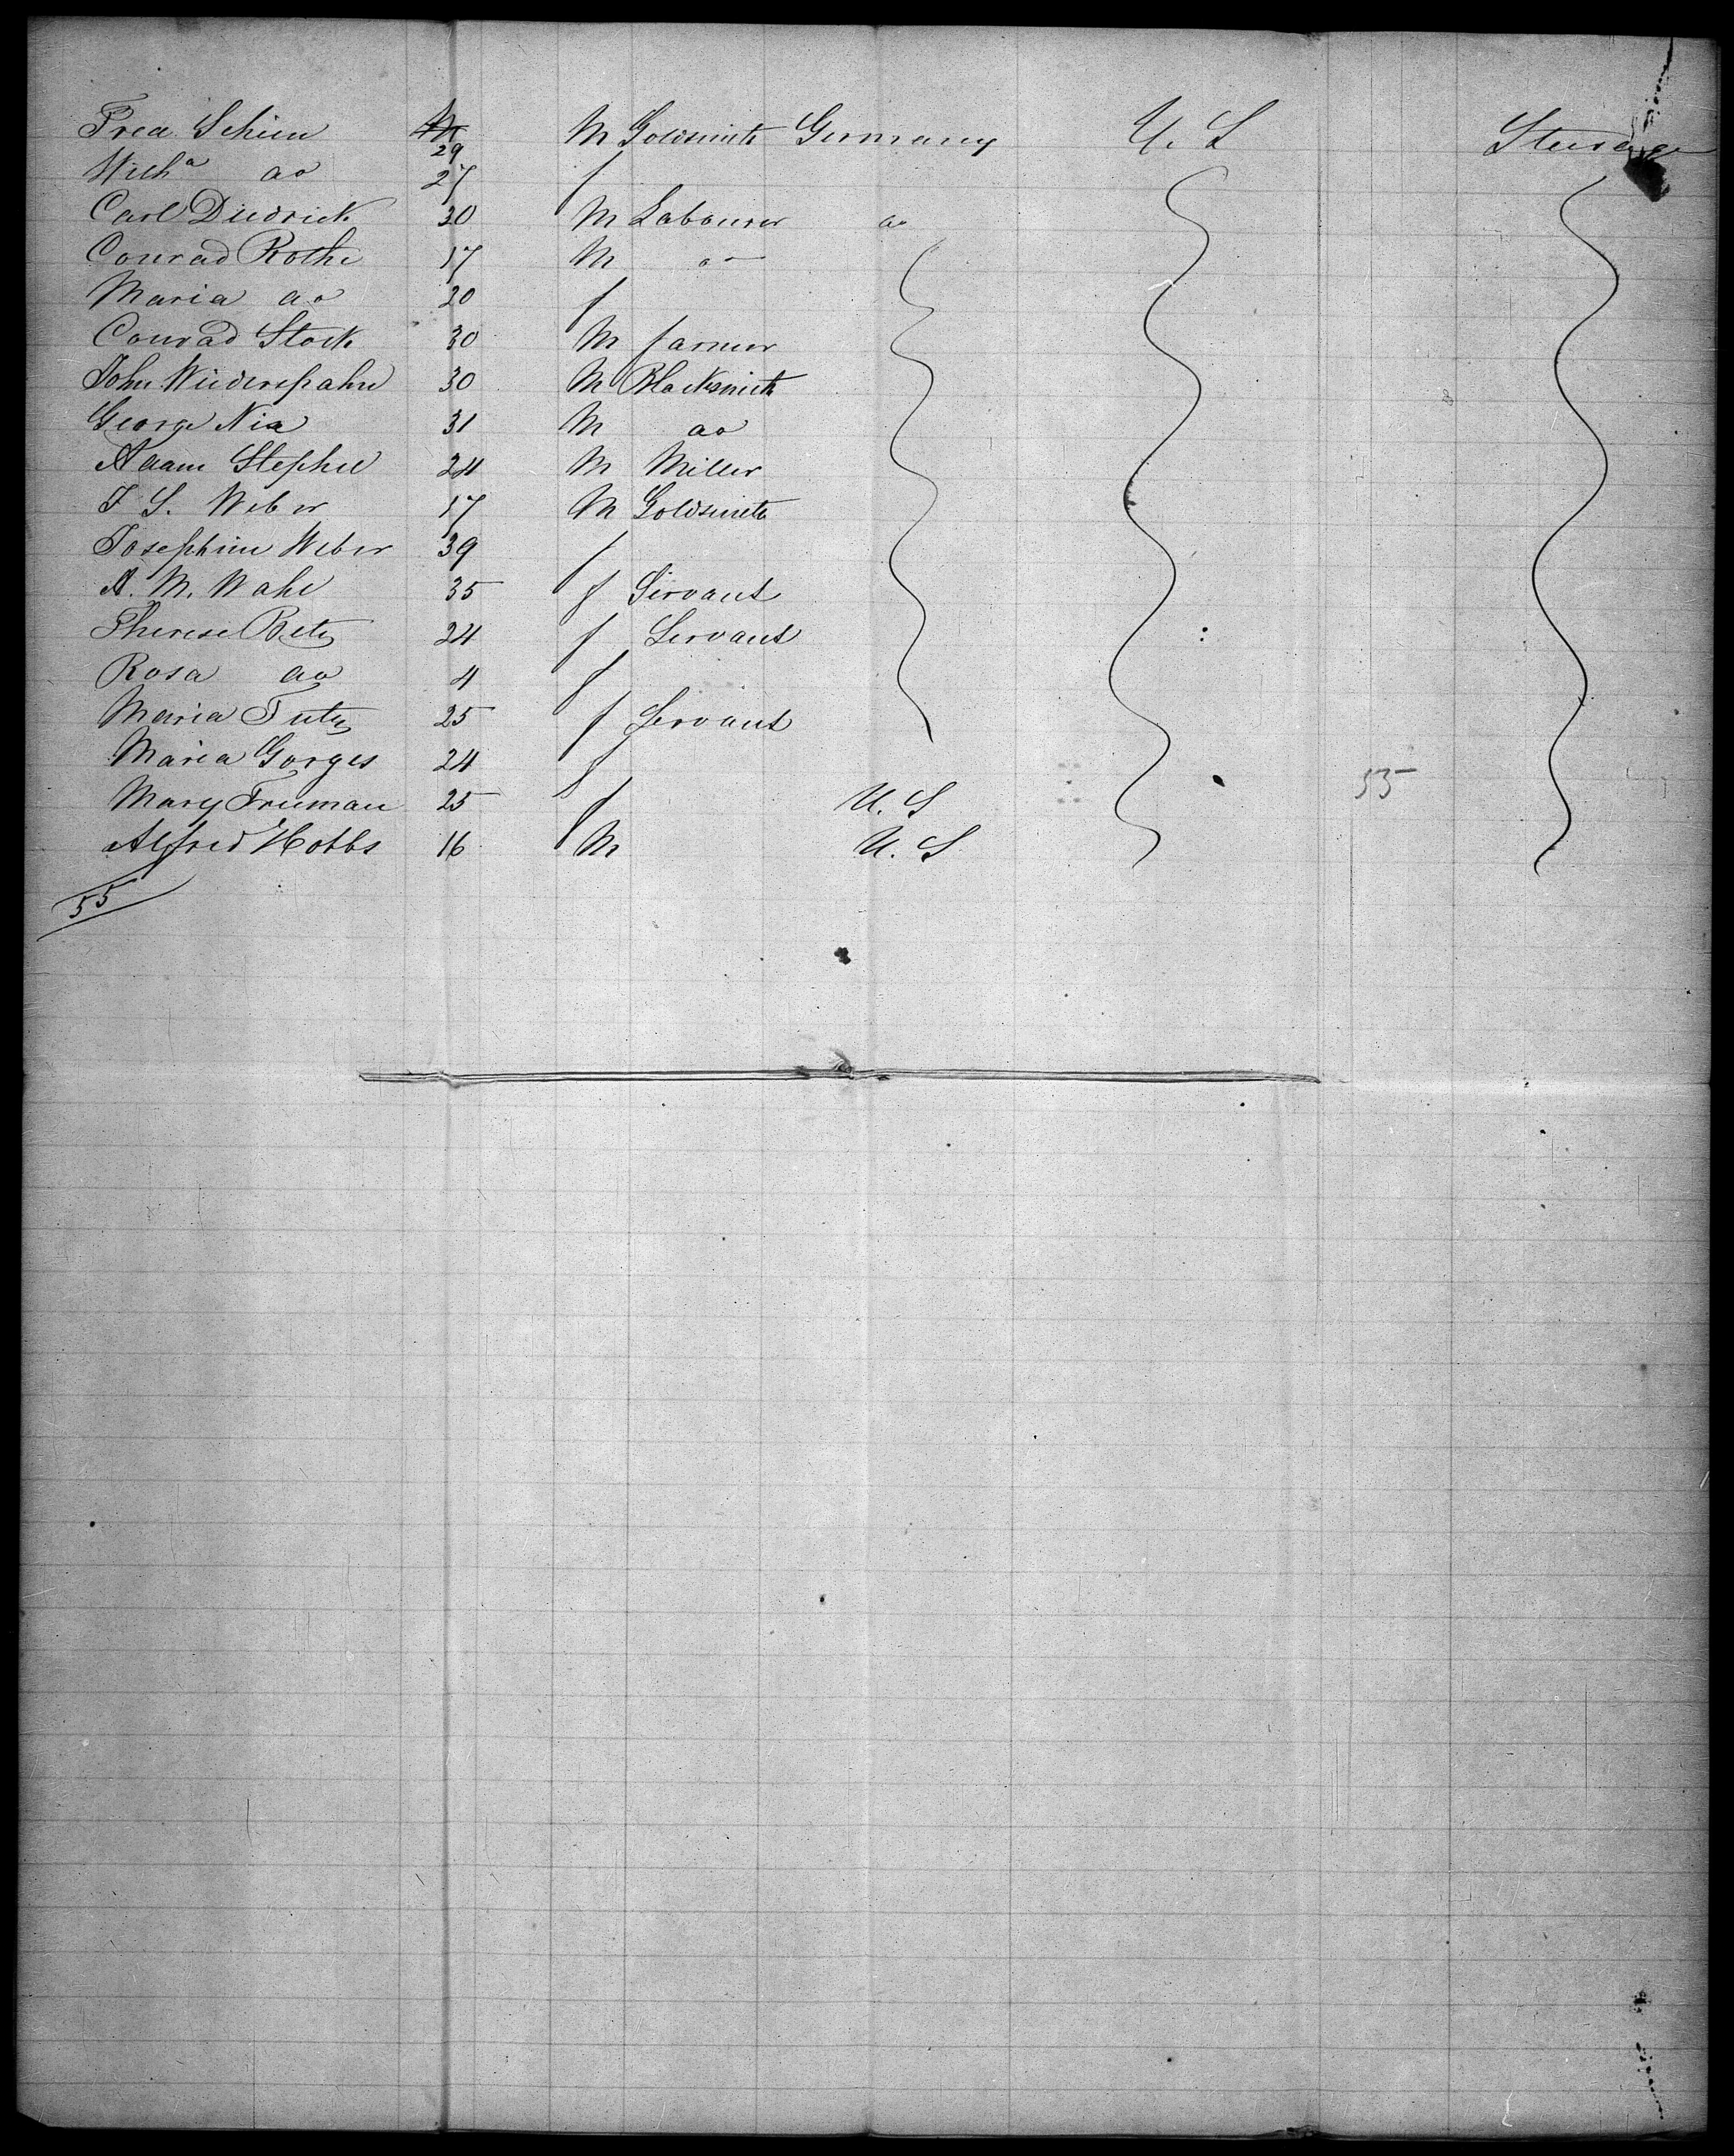 Fred Schien M Goldsmith Germany U. S Steerage
29
Wilh^a do 27 f
Carl Diedrick 30 M Labourer do
Conrad Rothe 17 M do
Maria do 20 f
Conrad Stock 30 M farmer
John Wiederspahn 30 M Blacksmith
George Nia 31 M do
Adam Stephie 24 M Miller
J S. Weber 17 M Goldsmith
Josephine Weber 39 f
A. M. Wahl 35 f Servant
Therese Betz 24 f Servant
Rosa do 4 f
Maria 25 f Servant
Maria Gorges 24 f
Mary Truman 25 f U. S 55
Alfred Hobbs 16 M U. S
55